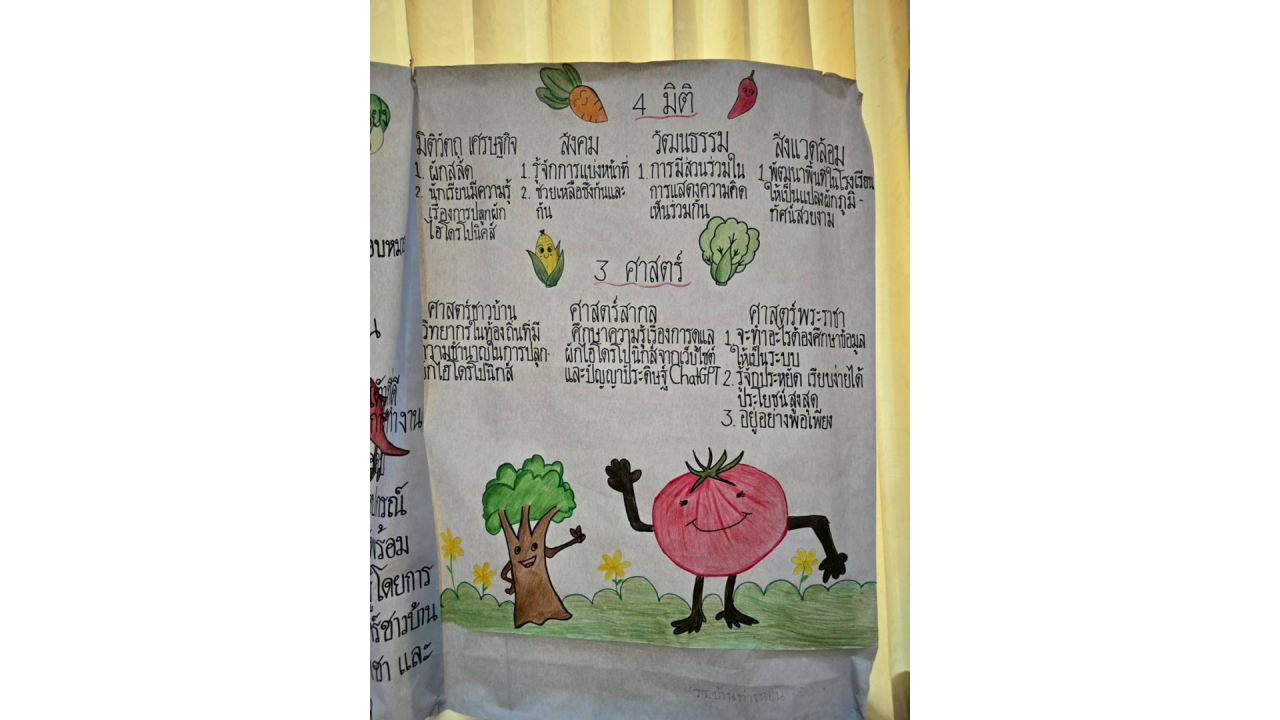 4 มิติ
มิติวัตถุ เศรษฐกิจ
1. ผักสลัด
2. นักเรียนมีความรู้
เรื่องการปลูกผัก
ไฮโดรโปนิคส์
สังคม
1. รู้จักการแบ่งหน้าที่
2. ช่วยเหลือซึ่งกันและ
กัน
วัฒนธรรม
1. การมีส่วนร่วมใน
การแสดงความคิด
เห็นร่วมกัน
สิ่งแวดล้อม
1. พัฒนาพื้นที่ในโรงเรียน
ให้เป็นแปลงผักภูมิ-
ทัศน์สวยงาม
3 ศาสตร์
ศาสตร์ชาวบ้าน
วิทยากรในท้องถิ่นที่มี
ความชำนาญในการปลูก
ผักไฮโดรโปนิกส์
ศาสตร์สากล
ศึกษาความรู้เรื่องการดูแล
ผักไฮโดรโปนิกส์จากเว็บไซต์
และปัญญาประดิษฐ์ ChatGPT
ศาสตร์พระราชา
1. จะทำอะไรต้องศึกษาข้อมูล
ให้เป็นระบบ
2. รู้จักประหยัด เรียบง่ายได้
ประโยชน์สูงสุด
3. อยู่อย่างพอเพียง
พร้อม
โดยการ
ชาวบ้าน
และ